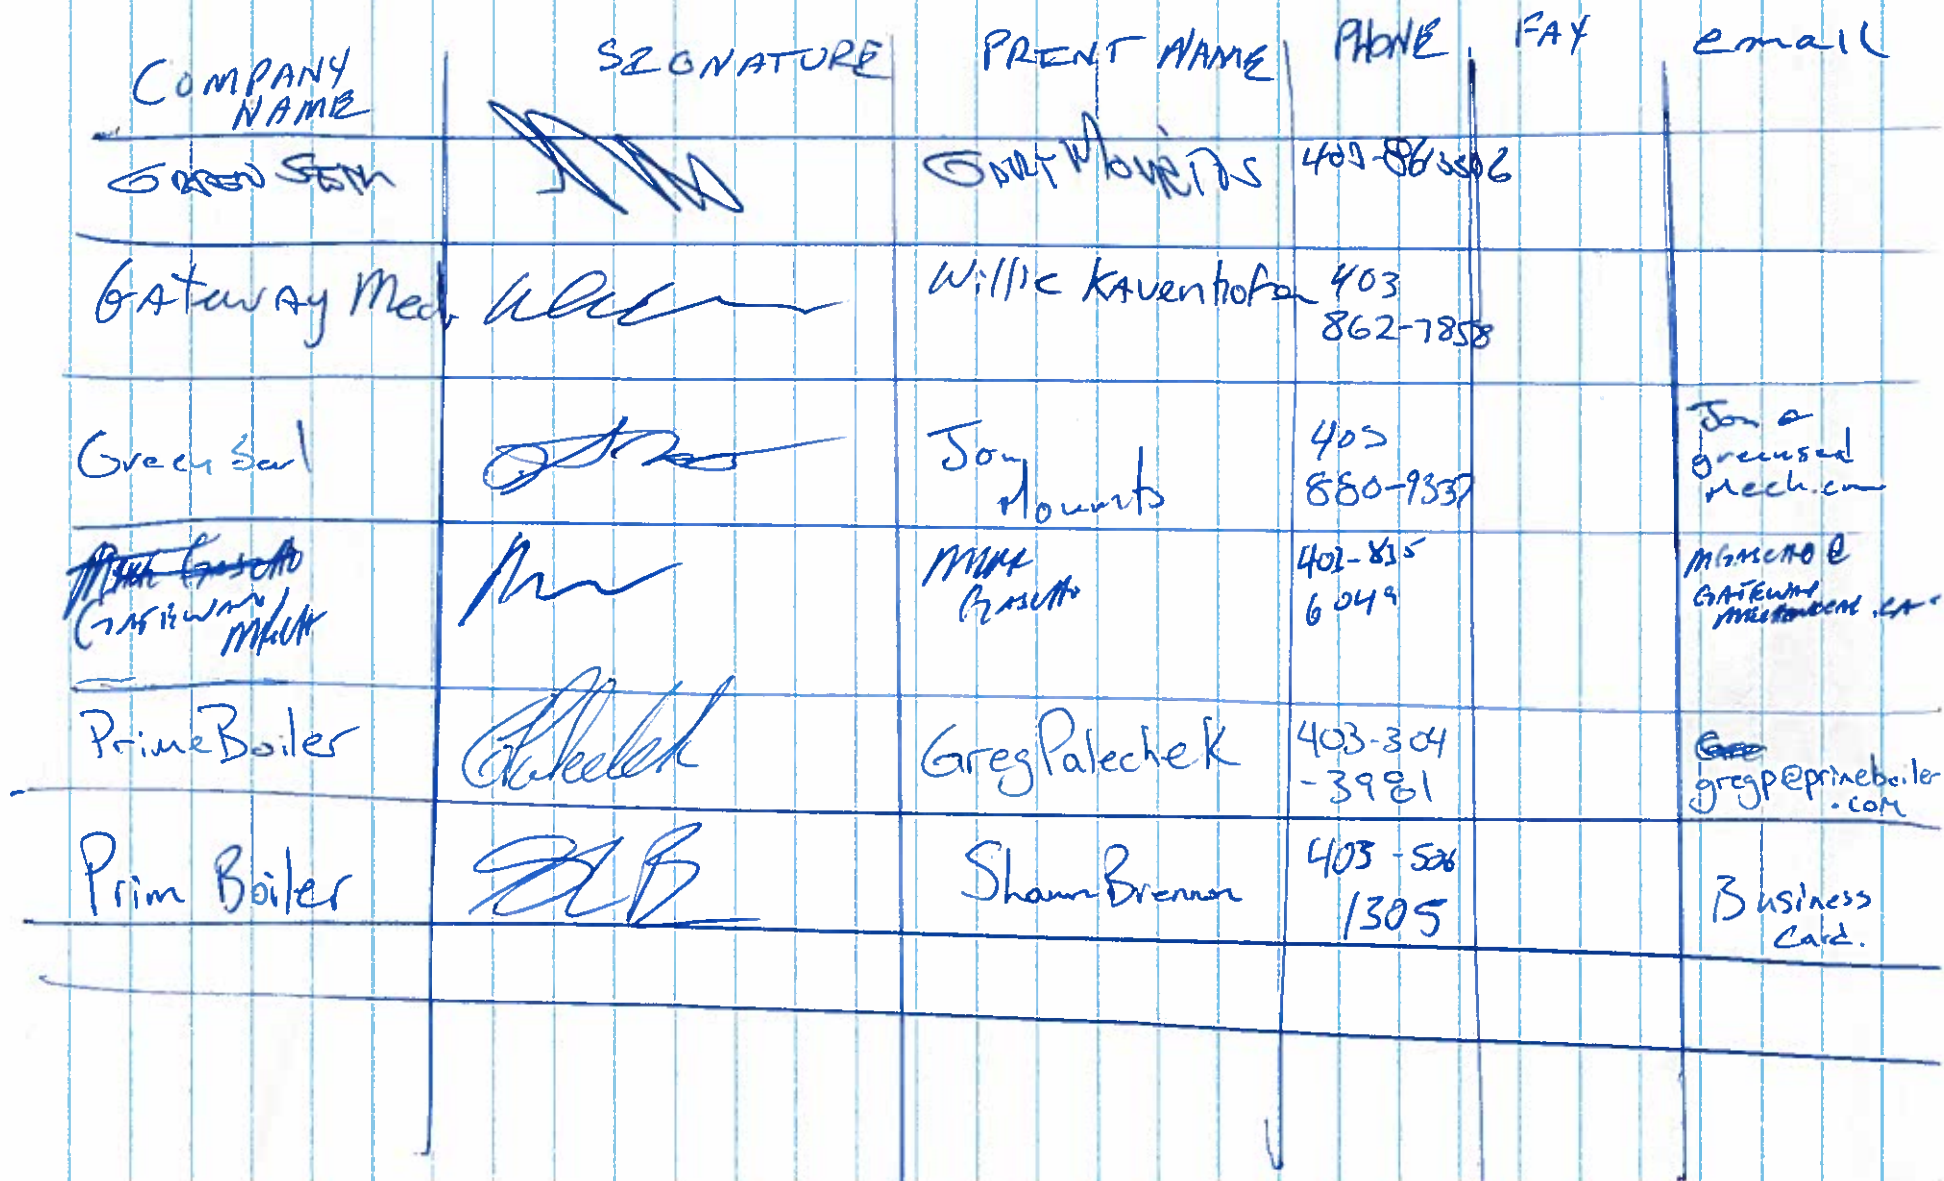 COMPANY NAME SIGNATURE PRINT NAME PHONE FAX email
GREEN SEAL GARY
Gateway Mech. Willie 403
862-7858
Green Seal Jon Mounts 403
880-9337
Jon @
greenseal
mech.com
GATEWAY MECH MARK GASCHO 403-835
6049
MGASCHO @
GATEWAY
MECHANICAL.CA
Prime Boiler Greg Palechek 403-304
-3981
gregp@primeboiler
.com
Prim Boiler Shawn Brennan 403-506
1305
Business
Card.